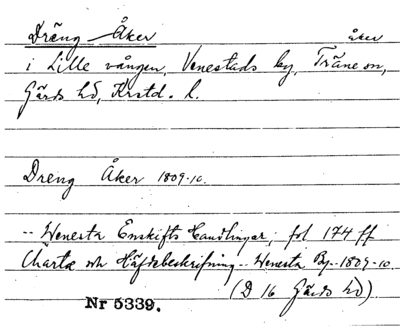 Dräng-Åker åker
i Lille vången, Venestads by, Träne sn,
Gärds hd, Krstd. l.
Dreng Åker 1809-10.
-- Wenesta Enskifts Handlingar, fol 174 ff
Charta och Häfdebeskrifning -- Wenesta By - 1809-10.
(D 16 Gärds hd)
Nr 5339.